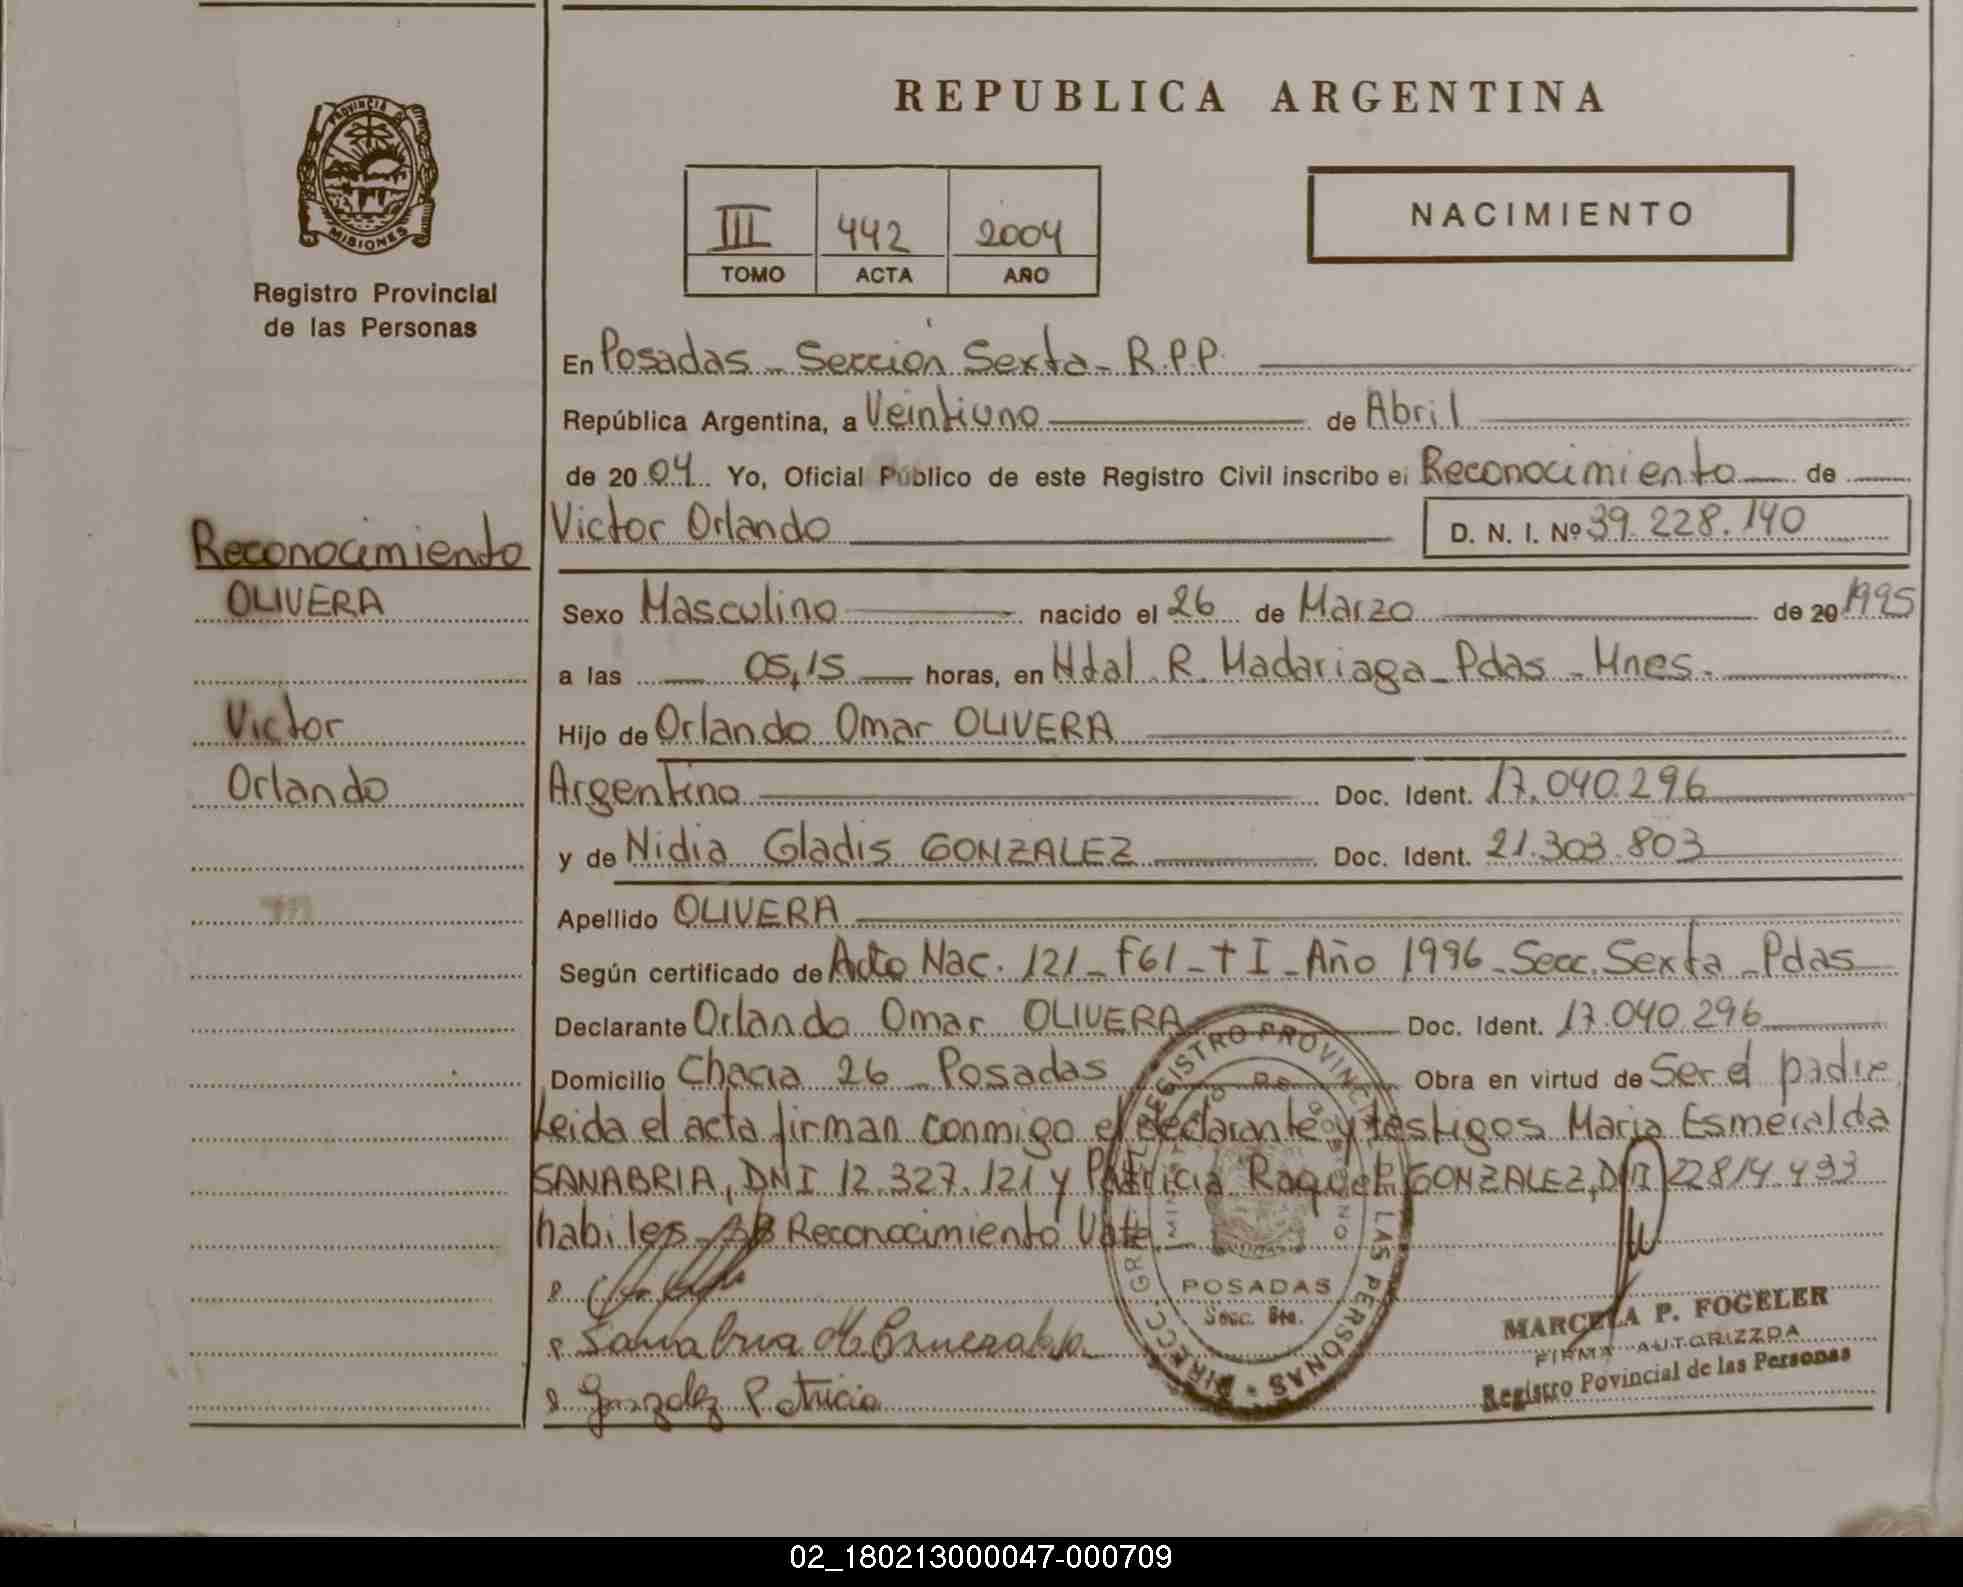 REPUBLICA ARGENTINA
PROVINCIA DE
MISIONES
Registro Provincial
de las Personas
III 442 2004
TOMO ACTA AÑO
NACIMIENTO
En Posadas - Sección Sexta - R.P.P.
República Argentina, a Veintiuno de Abril
de 20 04 Yo, Oficial Público de este Registro Civil inscribo el Reconocimiento de
Victor Orlando D. N. I. Nº 39.228.140
Reconocimiento
OLIVERA
Victor
Orlando
Sexo Masculino nacido el 26 de Marzo de 20 1995
a las 05,15 horas, en Hdal R. Madariaga - Pdas - Mnes.
Hijo de Orlando Omar OLIVERA
Argentino Doc. Ident. 17.040.296
y de Nidia Gladis GONZALEZ Doc. Ident. 21.303.803
Apellido OLIVERA
Según certificado de Acta Nac. 121 - F61 - T I - Año 1996 - Secc. Sexta - Pdas
Declarante Orlando Omar OLIVERA Doc. Ident. 17.040.296
Domicilio Chacra 26 Posadas Obra en virtud de Ser el padre
Leida el acta firman conmigo el declarante y testigos Maria Esmeralda
SANABRIA, DNI 12.327.121 y Patricia Raquel GONZALEZ, DNI 22.814.433
habiles - Reconocimiento Vale
Sanabria M Esmeralda
Gonzalez Patricia
DIRECC. GRAL. REGISTRO PROVINCIAL DE LAS PERSONAS
MINISTERIO DE GOBIERNO
POSADAS
Secc. 6ta.
MARCELA P. FOGELER
FIRMA AUTORIZZDA
Registro Povincial de las Personas
02_180213000047-000709